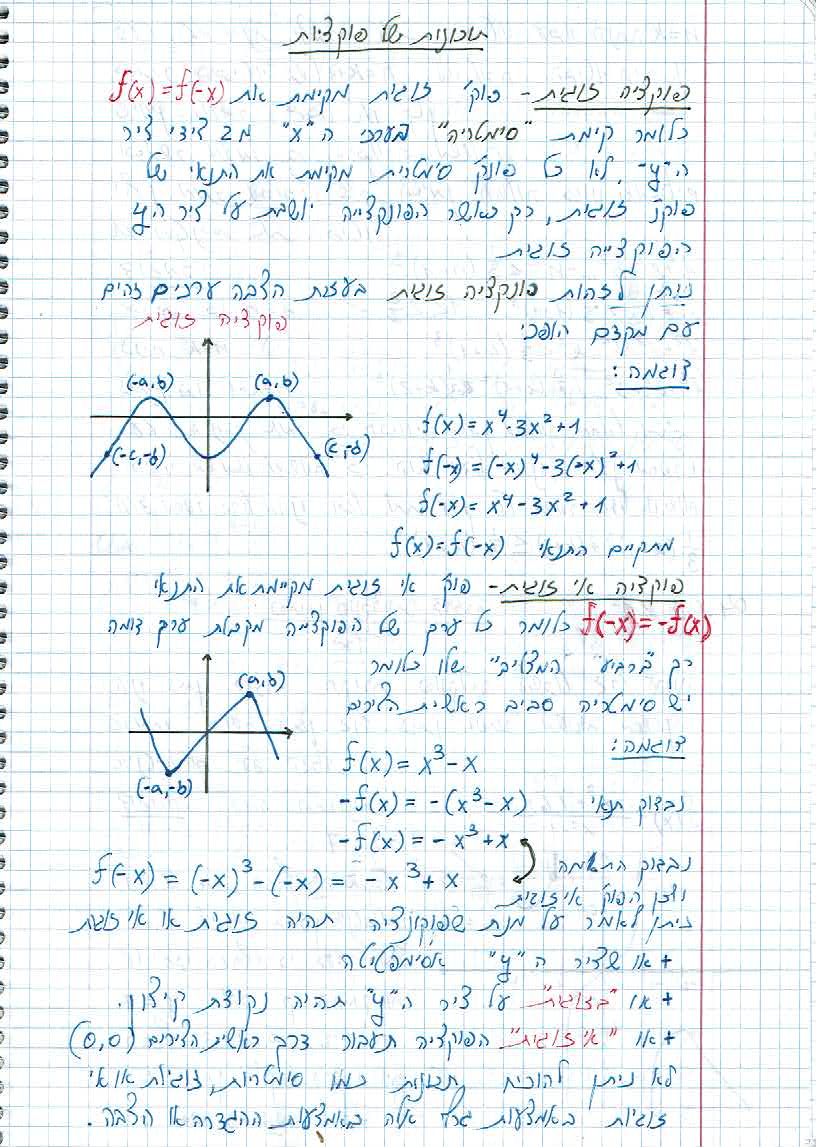 תכונות של פוקציות
פוקציה זוגית - פוק' זוגית מקימת את f(x)=f(-x)
כלומר קימת "סימטריה" בערכי ה"x" מב צידי ציר
ה"y". לא כל פונק' סימטרית מקימת את התנאי של
פוקנ' זוגית, רק כאשר הפונקצייה יושבת על ציר הy
הפוקצייה זוגית
ניתן לזהות פונקציה זוגית בעזרת הצבה ערכים זהים
עם מקדם הופכי
פוקציה זוגית
דוגמה:
(-a,b) (a,b)
(-c,-d) (c,-d)
f(x)=x⁴-3x²+1
f(-x)=(-x)⁴-3(-x)²+1
f(-x)=x⁴-3x²+1
מתקיים התנאי f(x)=f(-x)
פוקציה אי זוגית - פוק' אי זוגית מקיימת את התנאי
f(-x)=-f(x) כלומר כל ערך של הפוקציה מקבלת ערך דומה
רק ברביע "המצליב" שלו כלומר
יש סימטריה סביב ראשית הצירים
(a,b)
(-a,-b)
דוגמה:
f(x)=x³-x
נבדוק תנאי -f(x)=-(x³-x)
-f(x)=-x³+x
נבדוק התאמה
f(-x)=(-x)³-(-x)=-x³+x
ולכן הפוק' אי זוגית
ניתן לאמר על מנת שפוקונציה תהיה זוגית או אי זוגת
+ או שציר ה"y" אסימפטיטה
+ או "בזוגית" על ציר ה"y" תהיה נקוצת קיצון.
+ או "אי זוגית" הפוקציה תעבור דרך ראשית הצירים (0,0)
לא ניתן להוכיח תכונות כמו סימטריות, זוגילת או אי
זוגיות באמצעות גרף אלה באמצעות ההגדרה או הצבה.